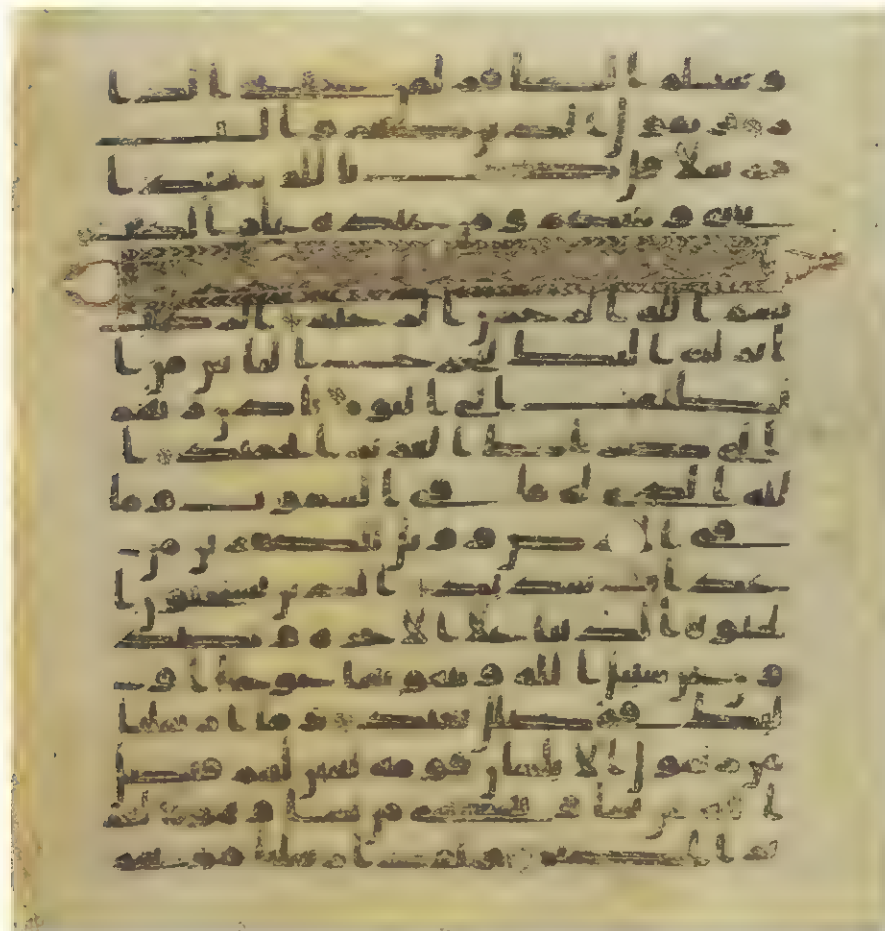 وسيعلم الكفر لمن عقبى الدا
ر ويقول الذين كفروا لست
مرسلا قل كفى بالله شهيدا
بيني وبينكم ومن عنده علم الكتب
بسم الله الرحمن الرحيم الر كتب
انزلنه اليك لتخرج الناس من ا
لظلمت الى النور باذن ربهم
الى صرط العزيز الحميد ا
لله الذي له ما في السموت وما
في الارض وويل للكفرين من
عذاب شديد الذين يستحبون ا
لحيوة الدنيا على الاخرة ويصدو
ن عن سبيل الله ويبغونها عوجا او
لئك في ضلل بعيد وما ارسلنا
من رسول الا بلسان قومه ليبين لهم فيضل
الله من يشا ويهدي من يشا وهو العز
يز الحكيم ولقد ارسلنا موسى